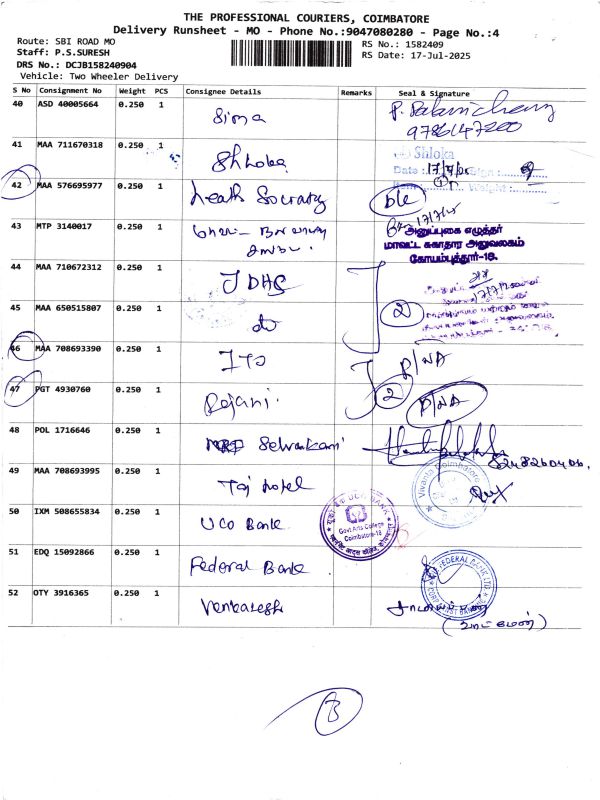 THE PROFESSIONAL COURIERS, COIMBATORE
Delivery Runsheet - MO - Phone No.:9047080280 - Page No.:4
Route: SBI ROAD MO
RS No.: 1582409
Staff: P.S.SURESH
RS Date: 17-Jul-2025
DRS No.: DCJB158240904
Vehicle: Two Wheeler Delivery
S No Consignment No Weight PCS Consignee Details Remarks Seal & Signature
40 ASD 40005664 0.250 1 Sima
41 MAA 711670318 0.250 1 Shloka Shloka
Date :
42 MAA 576695977 0.250 1 ble
17/7/25
43 MTP 3140017 0.250 1 அனுப்புகை எழுத்தர்
மாவட்ட சுகாதார அலுவலகம்
கோயம்புத்தூர்-18.
44 MAA 710672312 0.250 1 JDHS
45 MAA 650515807 0.250 1 do 2
46 MAA 708693390 0.250 1 ITO P/NA
47 PGT 4930760 0.250 1 Rajani 2 P/NA
48 POL 1716646 0.250 1 Selvarkani
49 MAA 708693995 0.250 1 Taj hotel Vivanta Coimbatore
50 IXM 508655834 0.250 1 UCO Bank UCO BANK
Govt Arts College
Coimbatore-18
51 EDQ 15092866 0.250 1 Federal Bank FEDERAL BANK LTD
52 OTY 3916365 0.250 1 Venkatesh